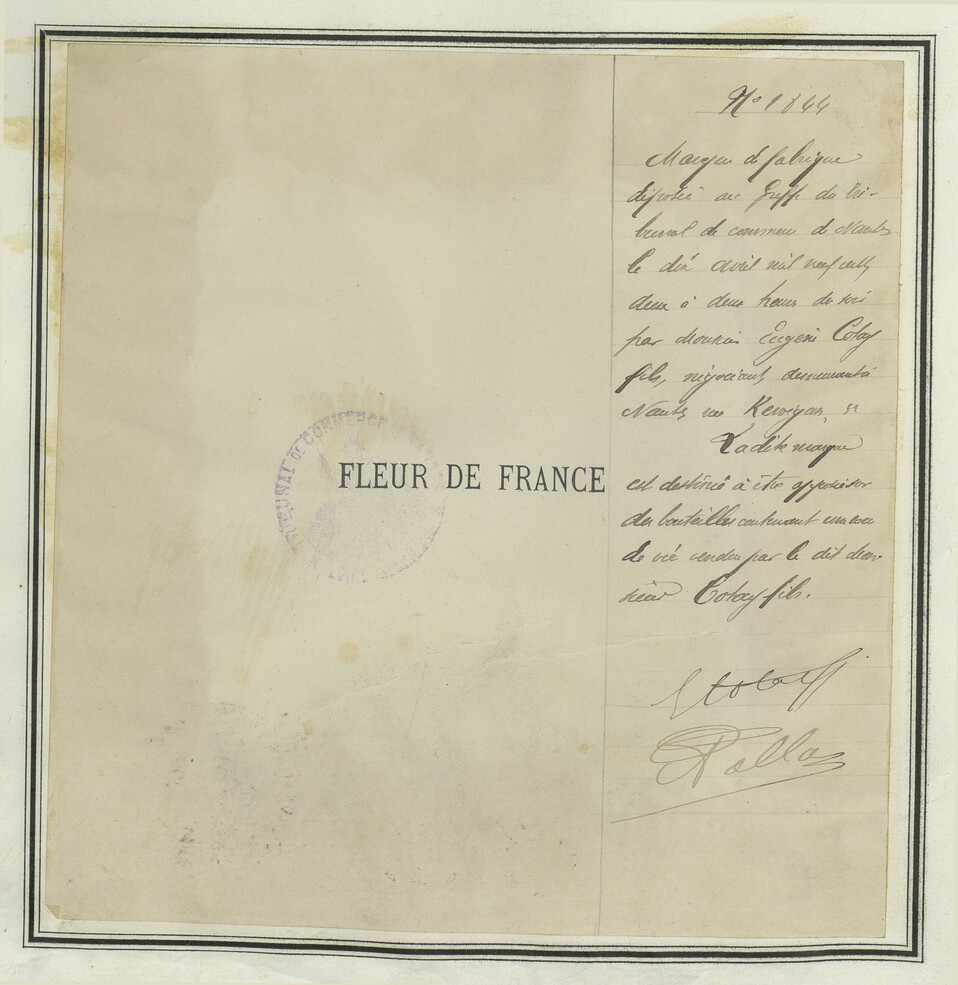 N° 1844
Marque de fabrique
déposée au Greffe du Tri-
bunal de commerce de Nantes
le dix avril mil neuf cent
deux à deux heures du soir
par Monsieur Eugène
fils, négociant, demeurant à
Nantes rue Kervégan,
Ladite marque
est destinée à être apposée sur
des bouteilles contenant une eau
de vie vendue par le dit Mon-
sieur fils.
TRIBUNAL DE COMMERCE DE
FLEUR DE FRANCE